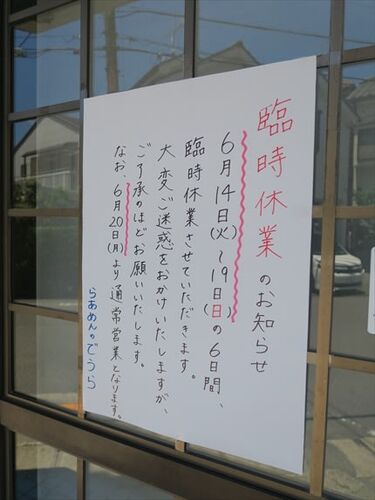 臨時休業のお知らせ
6月14日(火)~19日(日)の6日間、
臨時休業させていただきます。
大変ご迷惑をおかけいたしますが、
ご了承のほどお願いいたします。
なお、6月20日(月)より通常営業となります。
らあめんのでうら